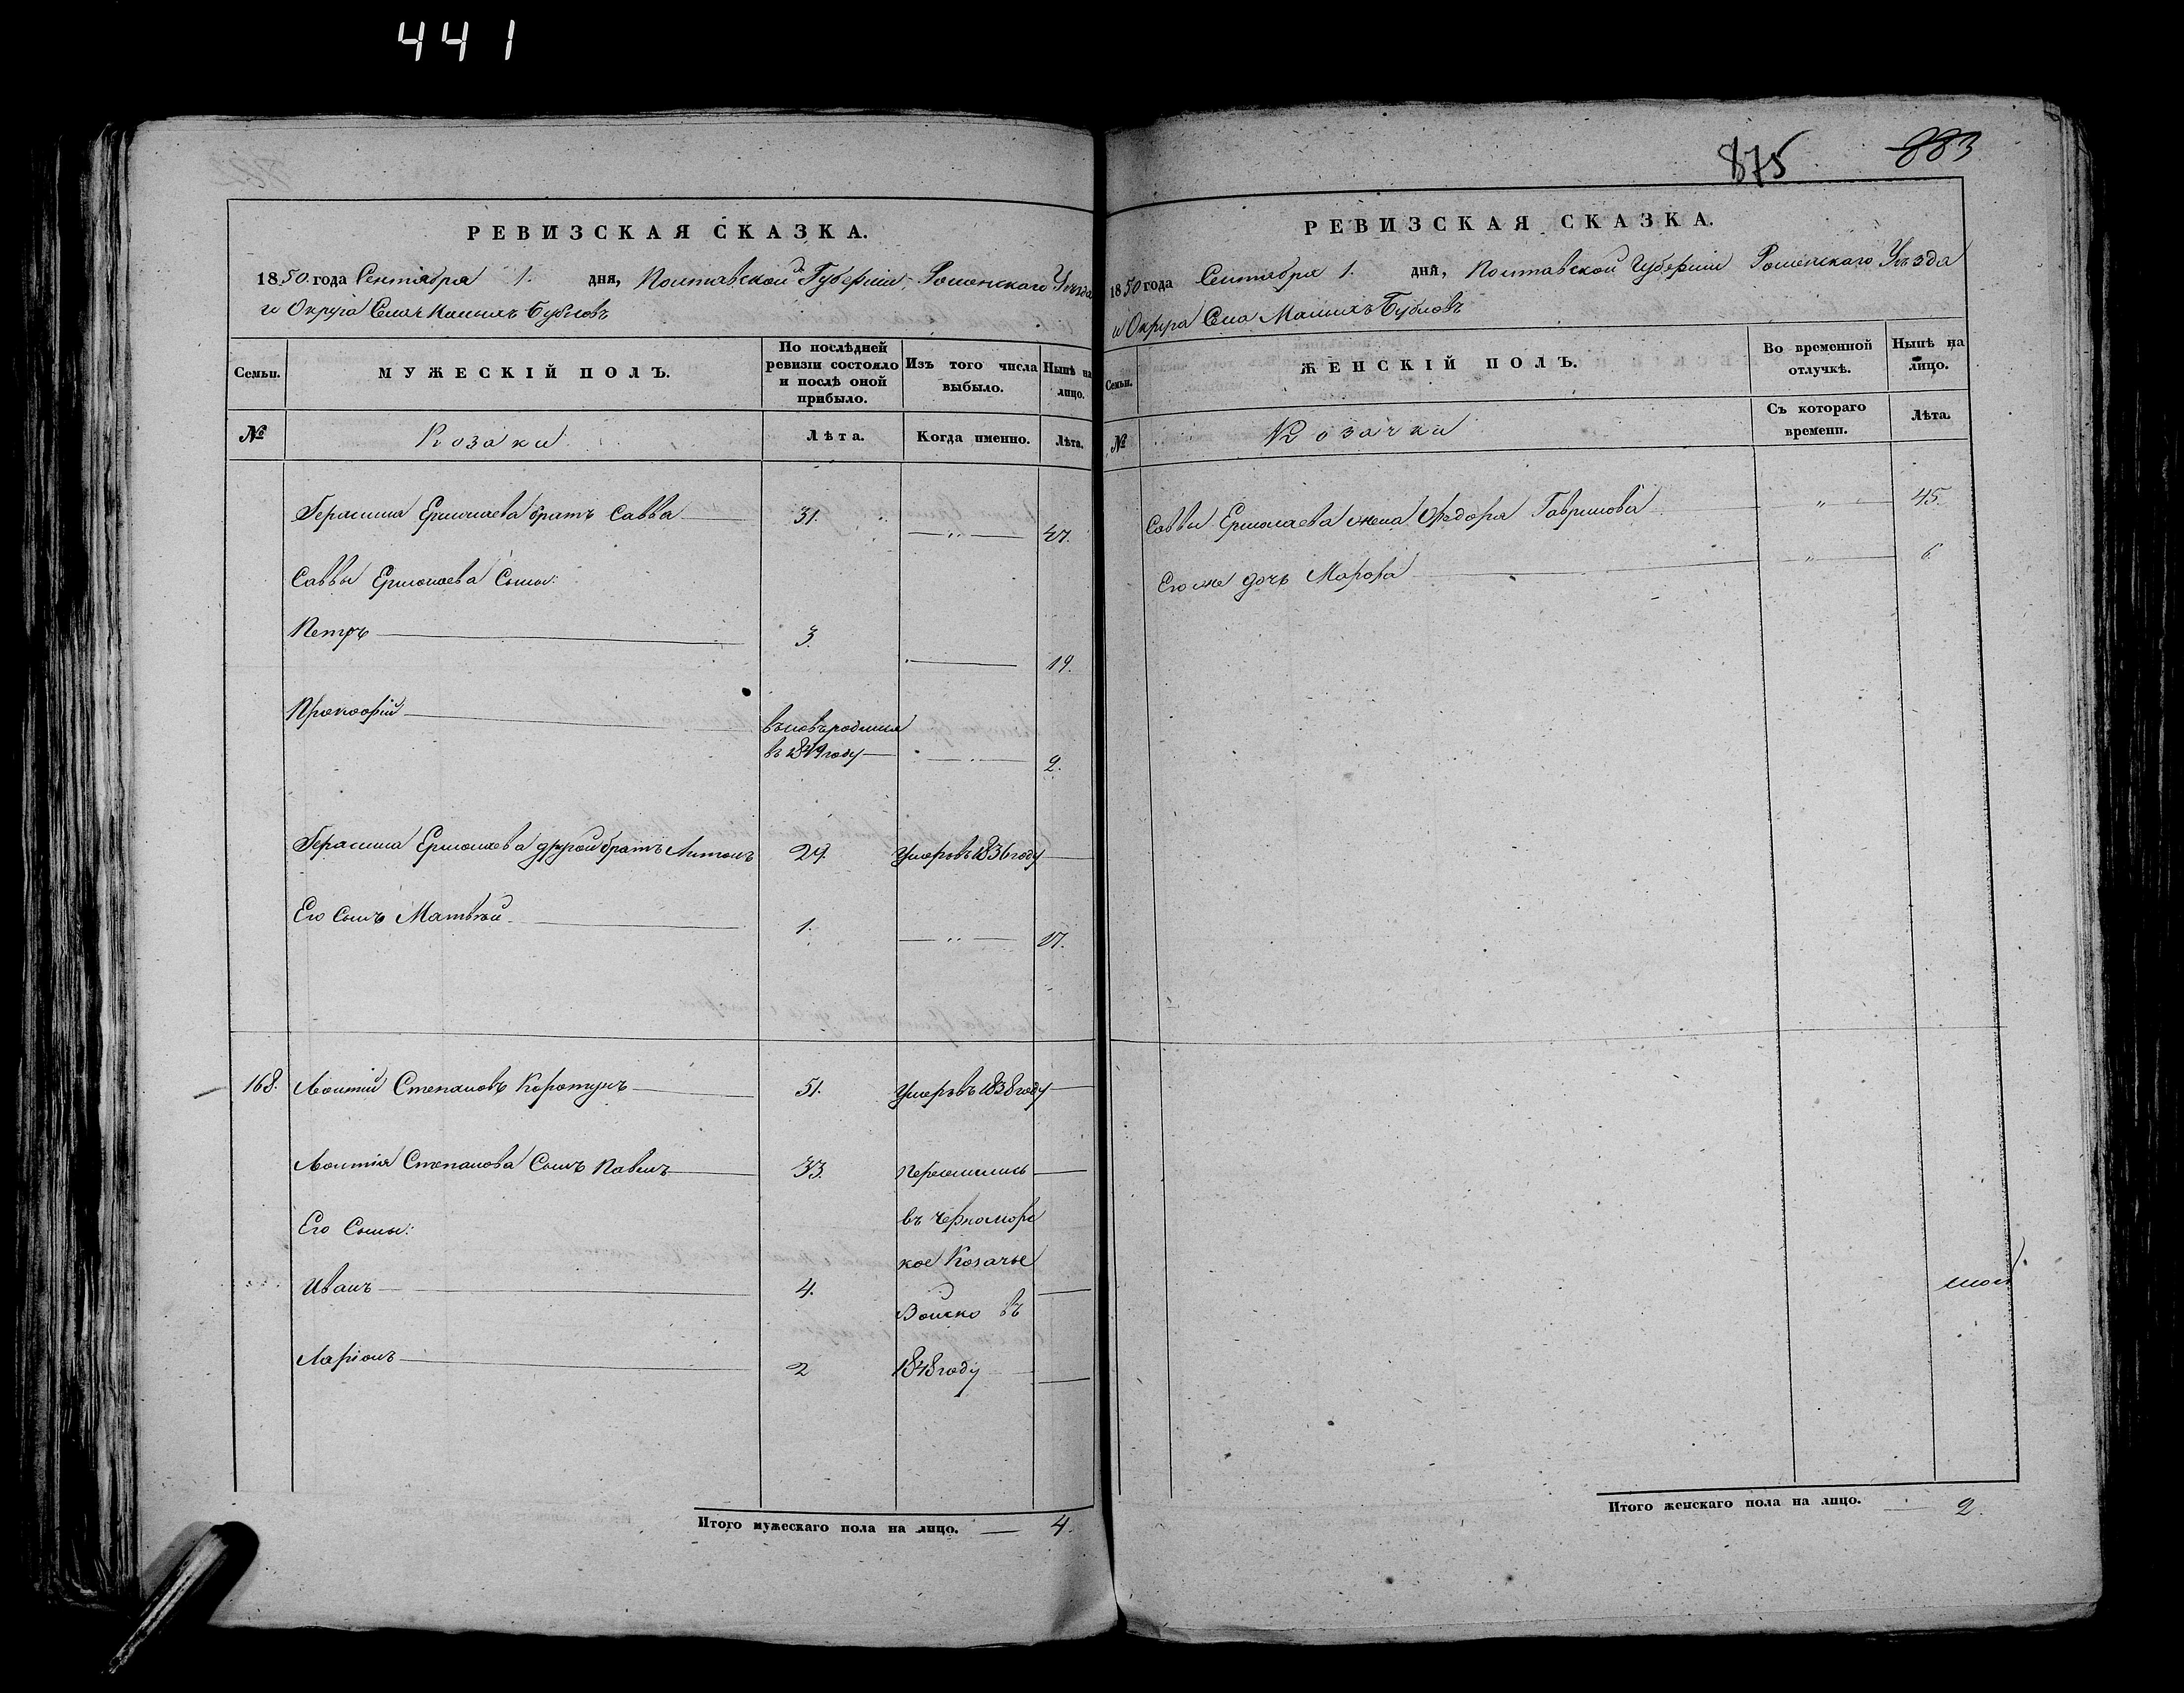 441
РЕВИЗСКАЯ СКАЗКА.
1850 года Сентября 1. дня, Полтавской Губерніи, Роменскаго Уѣзда
и Округа Села Малыхъ Бубновъ
Семьи.
МУЖЕСКІЙ ПОЛЪ.
По послѣдней ревизіи состояло и послѣ оной прибыло.
Изъ того числа выбыло.
Нынѣ на лицо.
№
Козаки
Лѣта.
Когда именно.
Лѣта.
Герасима Ермолаева братъ Савва 31. 47.
Саввы Ермолаева Сыны:
Петръ 3. 19.
Прокофій вновьродился
въ 1849 году 2.
Герасима Ермолаева другой братъ Антонъ 29. Умеръ въ 1836 году
Его Сынъ Матвѣй 1. 17.
168. Леонтій Степановъ Коротунъ 51. Умеръ въ 1838 году
Леонтія Степанова Сынъ Павелъ 33. Переселились
Его Сыны: въ Черноморс
кое Козачье
Иванъ 4.
Войско въ
Ларіонъ 2 1848 году
Итого мужескаго пола на лицо. 4.
875 883
РЕВИЗСКАЯ СКАЗКА.
1850 года Сентября 1. дня, Полтавской Губерніи Роменскаго Уѣзда
и Округа Села Малыхъ Бубновъ
Семьи.
ЖЕНСКІЙ ПОЛЪ.
Во временной отлучкѣ.
Нынѣ на лицо.
№
Козачки
Съ котораго времени.
Лѣта.
Саввы Ермолаева жена Федора Гаврилова " 45.
Его же дочь Марфа " 6.
Итого женскаго пола на лицо. 2.